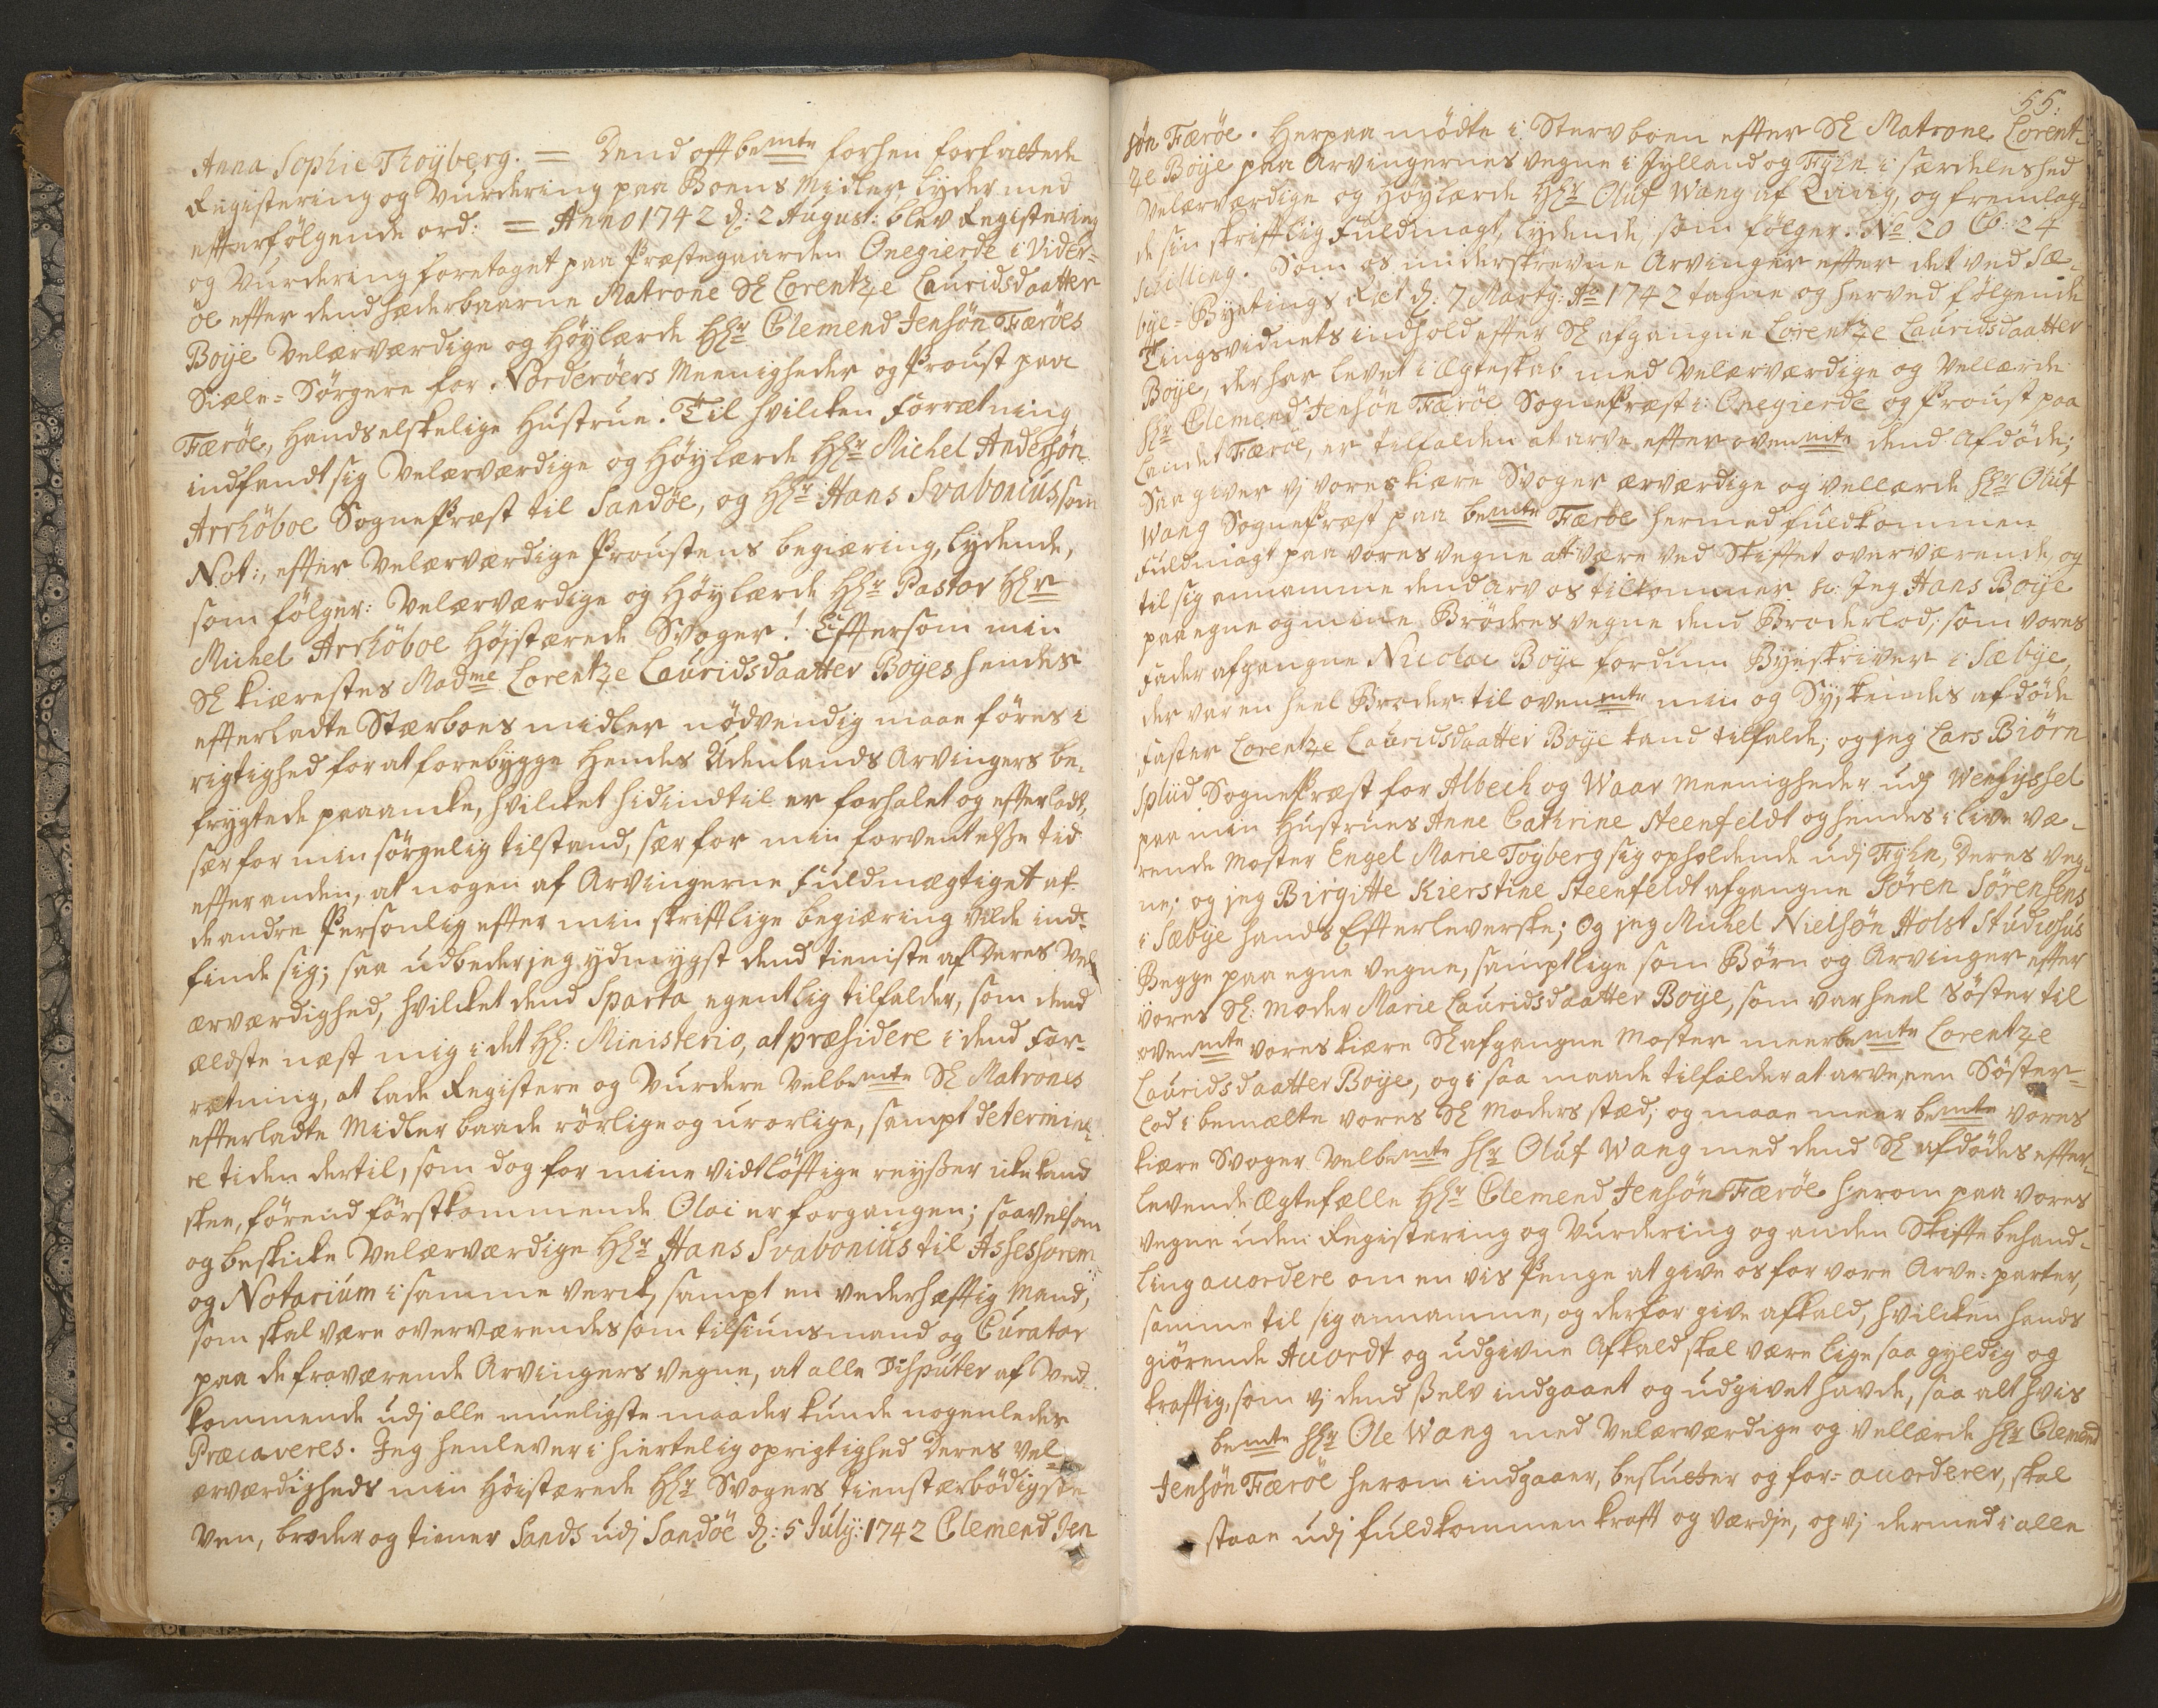 Anna Sophie Thoÿberg. = Dend offtbemte forhen forfattede
Registering og Vurdering paa Boens Midler lyder med
efterfölgende ord: = Anno 1742 d: 2 August: blev Registering
og Vurdering foretaget paa Præstegaarden Onegierde i Vider=
öe efter dend hæderbaarne Matrone Sl Lorentze Lauridsdaatter
Boÿe Velærværdige og Höylærde Hr Clemend Jensön Færöes
Siæle=Sörgere for Norderöers Meenigheder og Proust paa
Færöe, hands elskelige Hustrue. Til hvilcken Forrætning
indfandt sig Velærværdige og Höylærde Hr Michel Andersön
Arrhöboe SognePræst til Sandöe, og Hr Hans Svabonius som
Not:, efter Velærværdige Proustens begiæring, lydende,
som fölger: Velærværdige og Höylærde Hr Pastor Hr
Michel Arrhöboe Höjstærede Svoger! Eftersom min
Sl kiærestes Madme Lorentze Lauridsdaatter Boÿes hendes
efterladte Stærboes midler nödvendig maae föres i
rigtighed for at forebygge Hendes Udenlands Arvingers be=
frygtede paaancke, hvilcket hidindtil er forhalet og efterladt,
sær for min sörgelig tilstand, sær for min forventelße tid
efter anden, at nogen af Arvingerne Fuldmægtiget af
de andre Personlig efter min skrifftlige begiæring vilde ind=
finde sig; saa udbeder jeg ydmygst dend tieniste af Deres Vel
ærværdighed, hvilcket dend Sparta egentlig tilfalder, som dend
ældste næst mig i det H: Ministerio, at præsidere i dend For=
rætning, at lade Registere og Vurdere Velbemte Sl Matrones
efterladte Midler baade rörlige og urorlige, sampt determine=
re tiden dertil, som dog for mine vidtlöftige reyßer icke kand
skee, förend förstkommende Olai er forgangen; saavelsom
og beskicke Velærværdige Hr Hans Svabonius til Assessorem
og Notarium i samme verck, sampt en vederhæftig Mand,
som skal være overværendes som tilsiunsmand og Curator
paa de fraværende Arvingers vegne, at alle Disputer af Ved=
kommende udj alle mueligste maader kunde nogenledes
Præcaveres. Jeg henlever i hiertelig oprigtighed Deres Vel=
ærværdigheds min Höistærede Hr Svogers tienstærbödigste
Ven, broder og tiener Sands udj Sandöe d: 5 July: 1742 Clemend Jen
55.
sön Færöe. Herpaa mödte i Stervboen efter Sl Matrone Lorent=
ze Boÿe paa Arvingernes vegne i Jylland og Fyhn i særdeleshed
Velærværdige og Höylærde Hr Oluf Wang af Qviviig, og fremlag=
de sin skrifftlig Fuldmagt, lydende, som fölger: No 20 Cb: 24
Schilling. Som os underskrevne Arvinger efter det ved Sæ=
bye=Byetings Ret d: 7 Marty: Ao 1742 tagne og herved fölgende
Tingsvidnets indhold efter Sl afgangne Lorentze Lauridsdaatter
Boÿe, der har levet i Ægteskab med Velærværdige og Vellærde
Hr Clemend Jensön Færöe SognePræst i Onegierde og Proust paa
Landet Færöe, er tilfalden at arve efter ovenmte dend Afdöde;
Saa giver vj vores kiære Svoger ærværdige og Vellærde Hr Oluf
Wang SognePræst paa bemte Færöe hermed fuldkommen
Fuldmagt paa vores vegne at være ved Skiftet overværende, og
til sig annamme dend Arv os tilkommer &: Jeg Hans Boÿe
paa egne og mine Brödres vegne dend Broderlod, som vores
Fader afgangne Nicolai Boÿe fordum Byeskriver i Sæbye,
der var en heel Broder til ovenmte min og Syskendes afdöde
Faster Lorentze Lauridsdaatter Boÿe kand tilfalde; og jeg Lars Biörn
Spliid SognePræst for Albech og Waar Meenigheder udj Wensyssel
paa min Hustrues Anne Cathrine Steenfeldt og hendes i live væ=
rende Moster Engel Marie Toÿberg sig opholdende udj Fyhn, Deres veg=
ne; og jeg Birgitte Kierstine Steenfeldt afgangne Sören Sörensens
i Sæbye hands Efterleverske; Og jeg Michel Nielsön Holst Studiosus
Begge paa egne vegne, samptlige som Börn og Arvinger efter
vores Sl: Moder Marie Lauridsdaatter Boÿe, som var heel Söster til
ovenmte vores kiære Sl afgangne Moster meerbemte Lorentze
Lauridsdaatter Boÿe, og i saa maade tilfalder at arve een Söster=
lod i bemælte vores Sl Moders stæd; og maae meer bemte vores
kiære Svoger Velbemte Hr Oluf Wang med dend Sl afdödes efter=
levende Ægtefælle Hr Clemend Jensön Færöe herom paa vores
vegne uden Registering og Vurdering og anden Skifte behand=
ling accordere om en vis Penge at give os for vore Arve=parter,
samme til sig annamme, og derfor give afkald, hvilcken hands
giörende Accordt og udgivne Afkald skal være lige saa gyldig og
kraftig, som vj dend ßelv indgaaet og udgivet havde, saa alt hvis
bemte Hr Ole Wang med Velærværdige og Vellærde Hr Clemend
Jensön Færöe herom indgaaer, beslutter og for=accorderer, skal
staae udj fuldkommen kraft og værdje, og vj dermed i alle